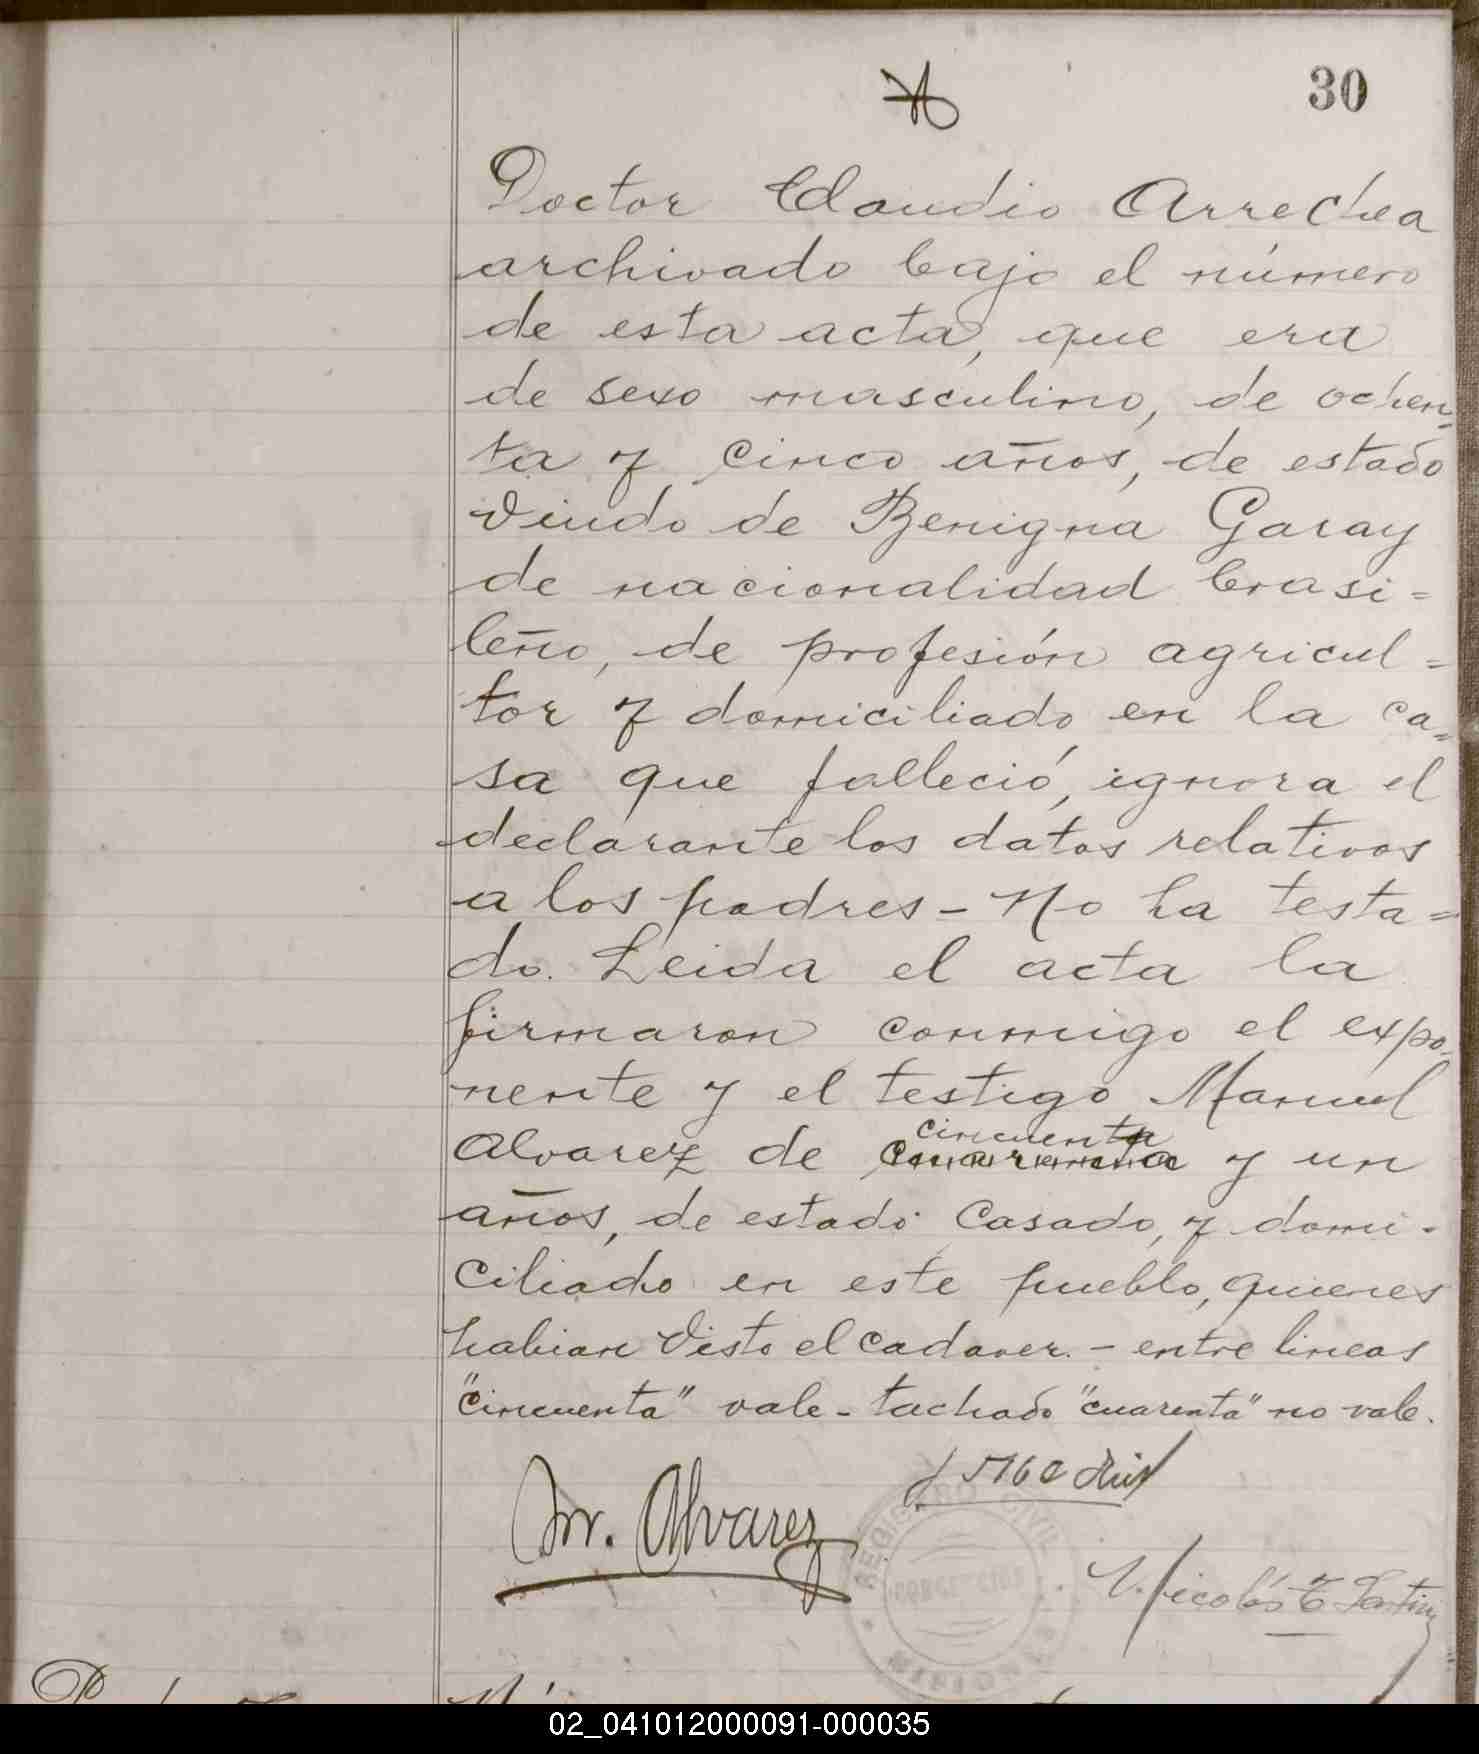 30
Doctor Claudio Arrechea
archivado bajo el número
de esta acta, que era
de sexo masculino, de ochen=
ta y cinco años, de estado
viudo de Benigna Garay
de nacionalidad brasi=
leño, de profesión agricul=
tor y domiciliado en la ca=
sa que falleció, ignora el
declarante los datos relativos
a los padres - No ha testa=
do. Leida el acta la
firmaron conmigo el expo-
nente y el testigo Manuel
cincuenta
Alvarez de cuarenta y un
años, de estado casado, y domi-
ciliado en este pueblo, quienes
habian visto el cadaver. - entre lineas
"cincuenta" vale - tachado "cuarenta" no vale.
M. Alvarez
Nicolás
REGISTRO CIVIL
CONCEPCION
MISIONES
02_041012000091-000035